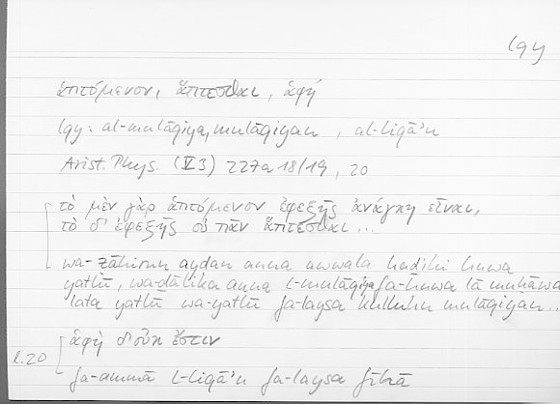 lqy
ἁπτόμενον, ἅπτεσθαι, ἁφή
lqy: al-mulāqiya, mulāqiyan, al-liqā'u
Arist. Phys. (V 3) 227a 18/19, 20
τὸ μὲν γὰρ ἁπτόμενον ἐφεξῆς ἀνάγκη εἶναι,
τὸ δ' ἐφεξῆς οὐ πᾶν ἅπτεσθαι...
wa-ẓāhirun ayḍan anna awwala hāḏihi huwa
yatlū, wa-ḏālika anna l-mulāqiya fa-huwa lā muḥāwa
lata yatlū wa-yatlū fa-laysa kulluhu mulāqiyan...
ἁφὴ δ' οὐκ ἔστιν
l.20
fa-ammā l-liqā'u fa-laysa fīhā